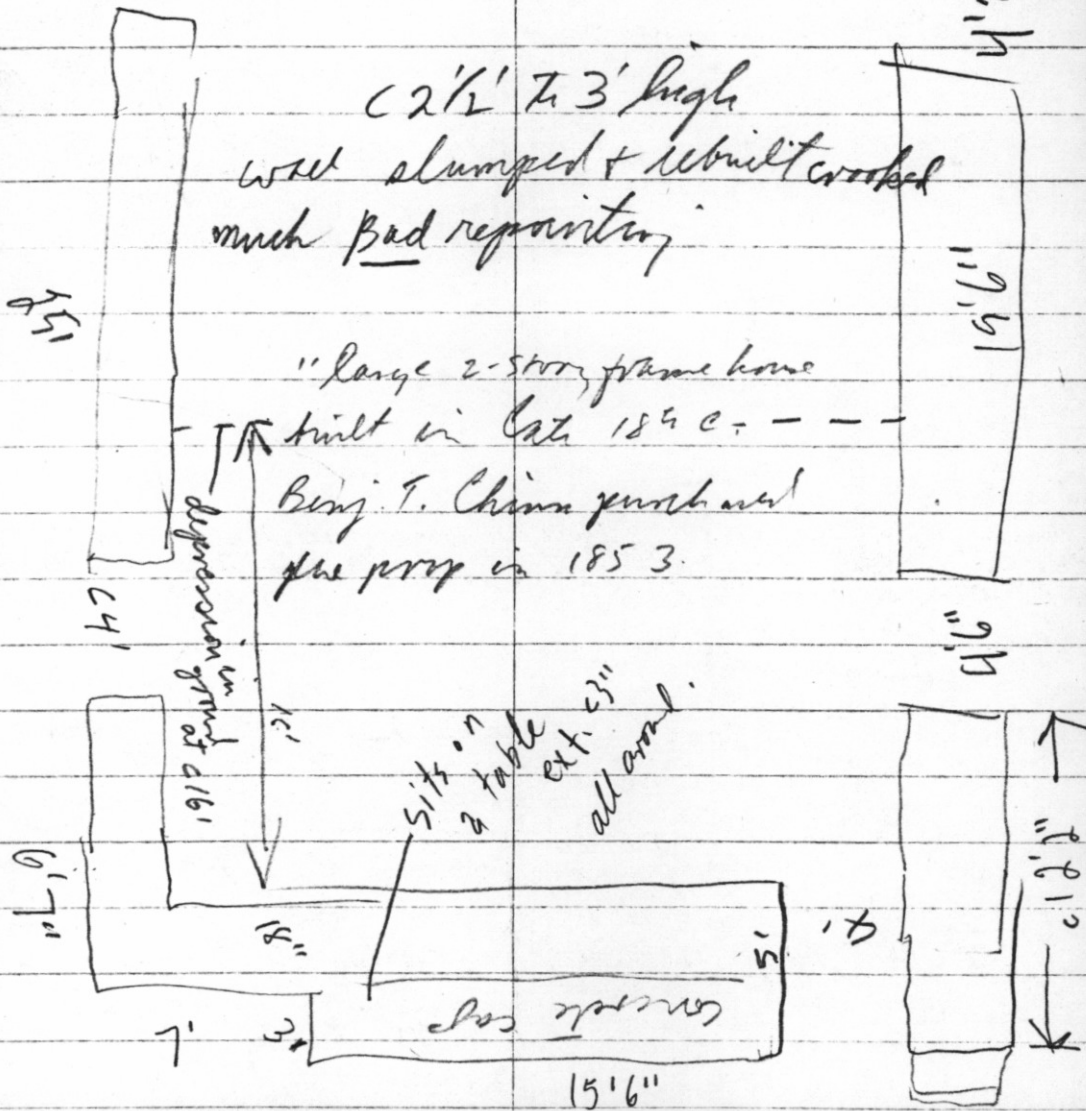 c 2½' to 3' high
wall slumped + rebuilt crooked
much Bad repointing
15'6"
"large 2-story frame house
built in late 18th c.
Benj. T. Chinn purchased
the prop in 1853.
c4'
depression in
ground at c16'
16'
4'6"
sits on
a table
ext. c3"
all around.
c12'2"
9'7"
18"
5'
4'
concrete cap
7'
3'
15'6"